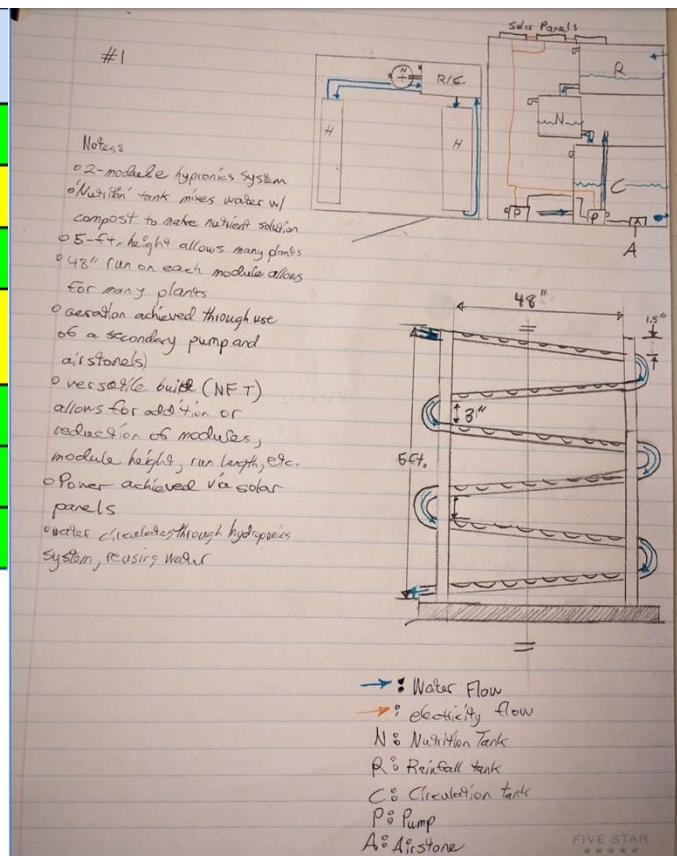 #1
Solar Panels
R
N
C
P
P
A
A
N
R/C
H
H
Notes:
2-module hypronics system
"Nutrition" tank mixes water w/
compost to make nutrient solution
5-ft. height allows many plants
48" run on each module allows
for many plants
aeration achieved through use
of a secondary pump and
airstone(s)
versatile build (NFT)
allows for addition or
reduction of modules,
module height, run length, etc.
Power achieved via solar
panels
water circulates through hydroponics
system, reusing water
48"
1.5"
3"
5ft.
: Water Flow
: electricity flow
N: Nutrition Tank
R: Rainfall tank
C: Circulation tank
P: Pump
A: Airstone
FIVE STAR